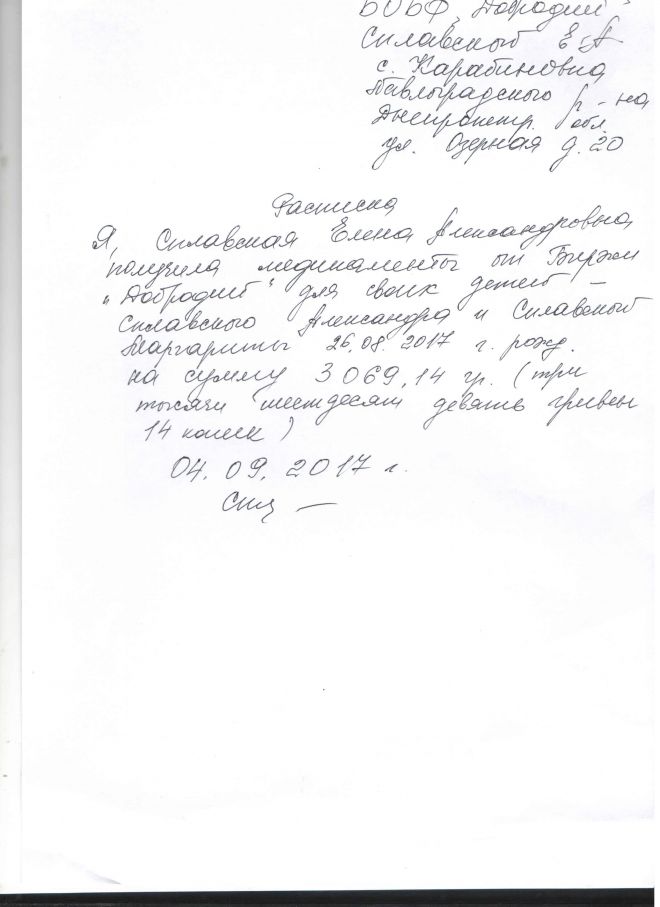 БОБФ "Добродий"
Сплавской Е.А
с. Карабиновка
Павлоградского р-на
Днепропетр. обл.
ул. Озерная д. 20
Расписка
Я, Сплавская Елена Александровна
получила медикаменты от Биржи
"Добродий" для своих детей -
Сплавского Александра и Сплавской
Маргариты 26.08.2017 г. рожд.
на сумму 3 069,14 гр. (три
тысячи шестдесят девять гривен
14 копеек)
04.09.2017 г.